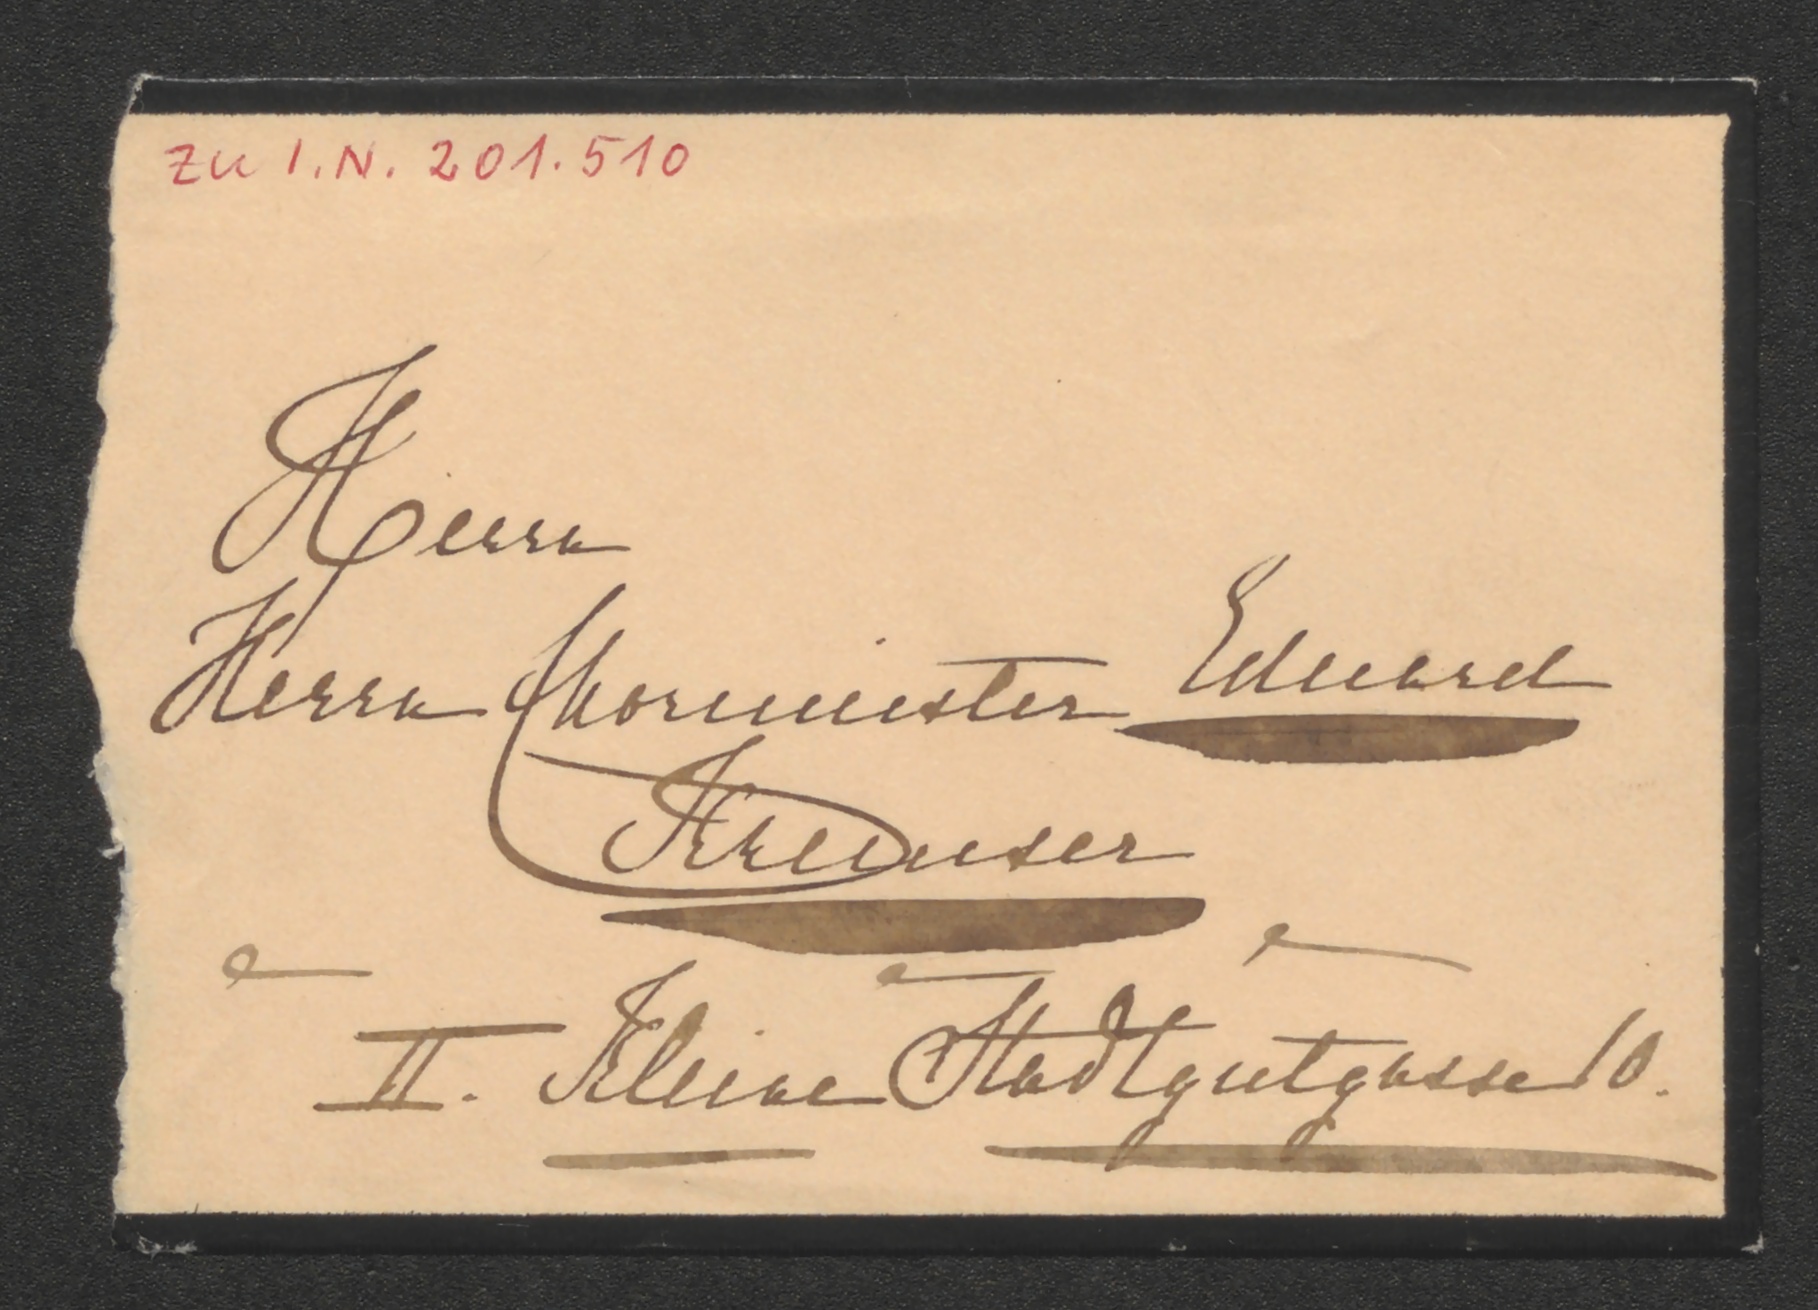 zu I.N. 201.510
Herrn
Herrn Chormeister Eduard
Kremser
II. Kleine Stadtgutgasse 10.